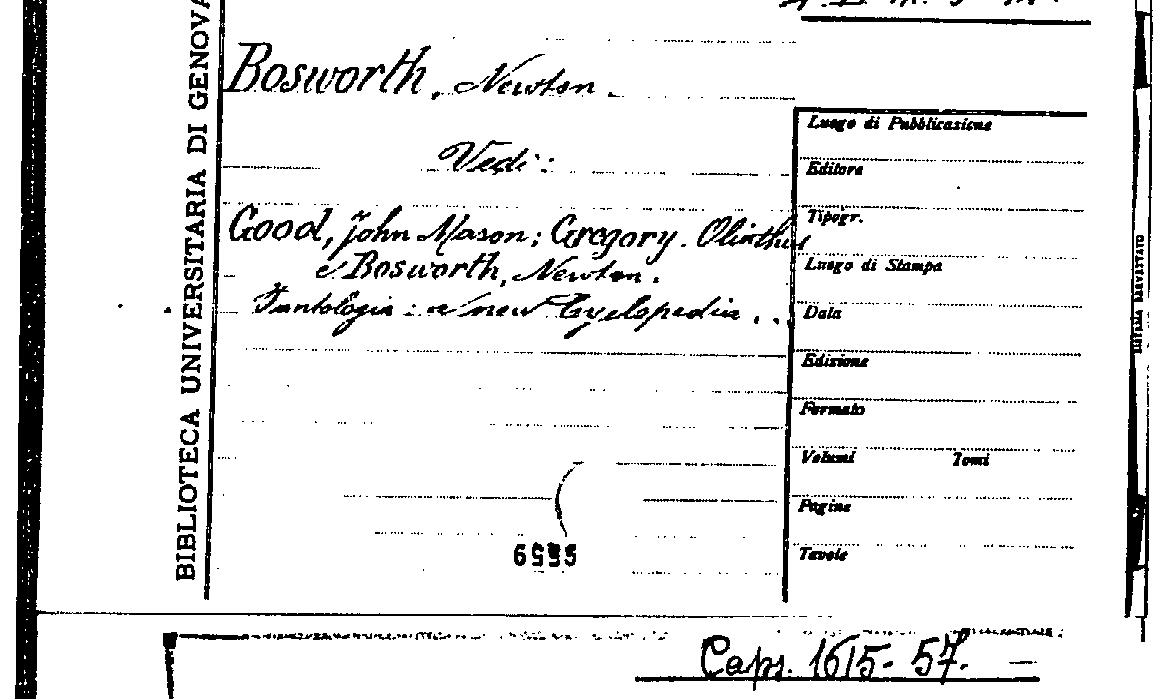 BIBLIOTECA UNIVERSITARIA DI GENOVA
Bosworth, Newton.
Vedi:
Good, John Mason; Gregory. Olinthus
e Bosworth, Newton.
Pantologia: a new Cyclopedia...
Luogo di Pubblicazione
Editore
Tipogr.
Luogo di Stampa
Data
Edizione
Formato
Volumi Tomi
Pagine
Tavole
Caps. 1615-57.-